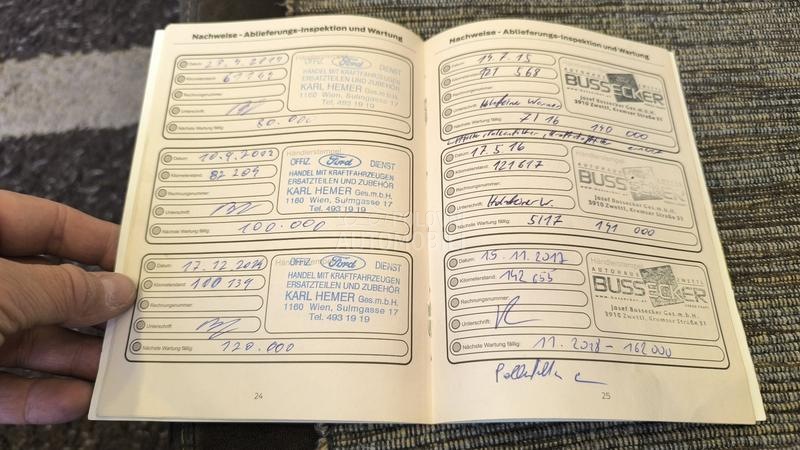 Nachweise - Ablieferungs-Inspektion und Wartung
Datum:
Kilometerstand: 61162
Rechnungsnummer:
Unterschrift:
Nächste Wartung fällig: 80.000
Händlerstempel
OFFIZ. Ford DIENST
HANDEL MIT KRAFTFAHRZEUGEN
ERSATZTEILEN UND ZUBEHÖR
KARL HEMER Ges.m.b.H.
1160 Wien, Sulmgasse 17
Tel. 493 19 19
Datum:
Kilometerstand: 82 209
Rechnungsnummer:
Unterschrift:
Nächste Wartung fällig: 100.000
Händlerstempel
OFFIZ. Ford DIENST
HANDEL MIT KRAFTFAHRZEUGEN
ERSATZTEILEN UND ZUBEHÖR
KARL HEMER Ges.m.b.H.
1160 Wien, Sulmgasse 17
Tel. 493 19 19
Datum: 17.12.2014
Kilometerstand: 100 139
Rechnungsnummer:
Unterschrift:
Nächste Wartung fällig: 120.000
Händlerstempel
OFFIZ. Ford DIENST
HANDEL MIT KRAFTFAHRZEUGEN
ERSATZTEILEN UND ZUBEHÖR
KARL HEMER Ges.m.b.H.
1160 Wien, Sulmgasse 17
Tel. 493 19 19
24
Nachweise - Ablieferungs-Inspektion und Wartung
Datum: 14.7.15
Kilometerstand: 568
Rechnungsnummer:
Unterschrift:
Nächste Wartung fällig: 7/16 000
AUTOHAUS
BUSSECKER
Josef Bussecker Ges.m.b.H.
3910 Zwettl, Kremser Straße 51
Datum: 17.5.16
Kilometerstand: 121617
Rechnungsnummer:
Unterschrift:
Nächste Wartung fällig: 5/17 141 000
BUSSECKER
Josef Bussecker Ges.m.b.H.
3910 Zwettl, Kremser Straße 51
Datum: 15.11.2017
Kilometerstand: 142 655
Rechnungsnummer:
Unterschrift:
Nächste Wartung fällig: 11.2018 - 162000
Händlerstempel
AUTOHAUS ZWETTL
BUSSECKER
www.bussecker.at
Josef Bussecker Ges.m.b.H.
3910 Zwettl, Kremser Straße 51
Pollenfilter
25